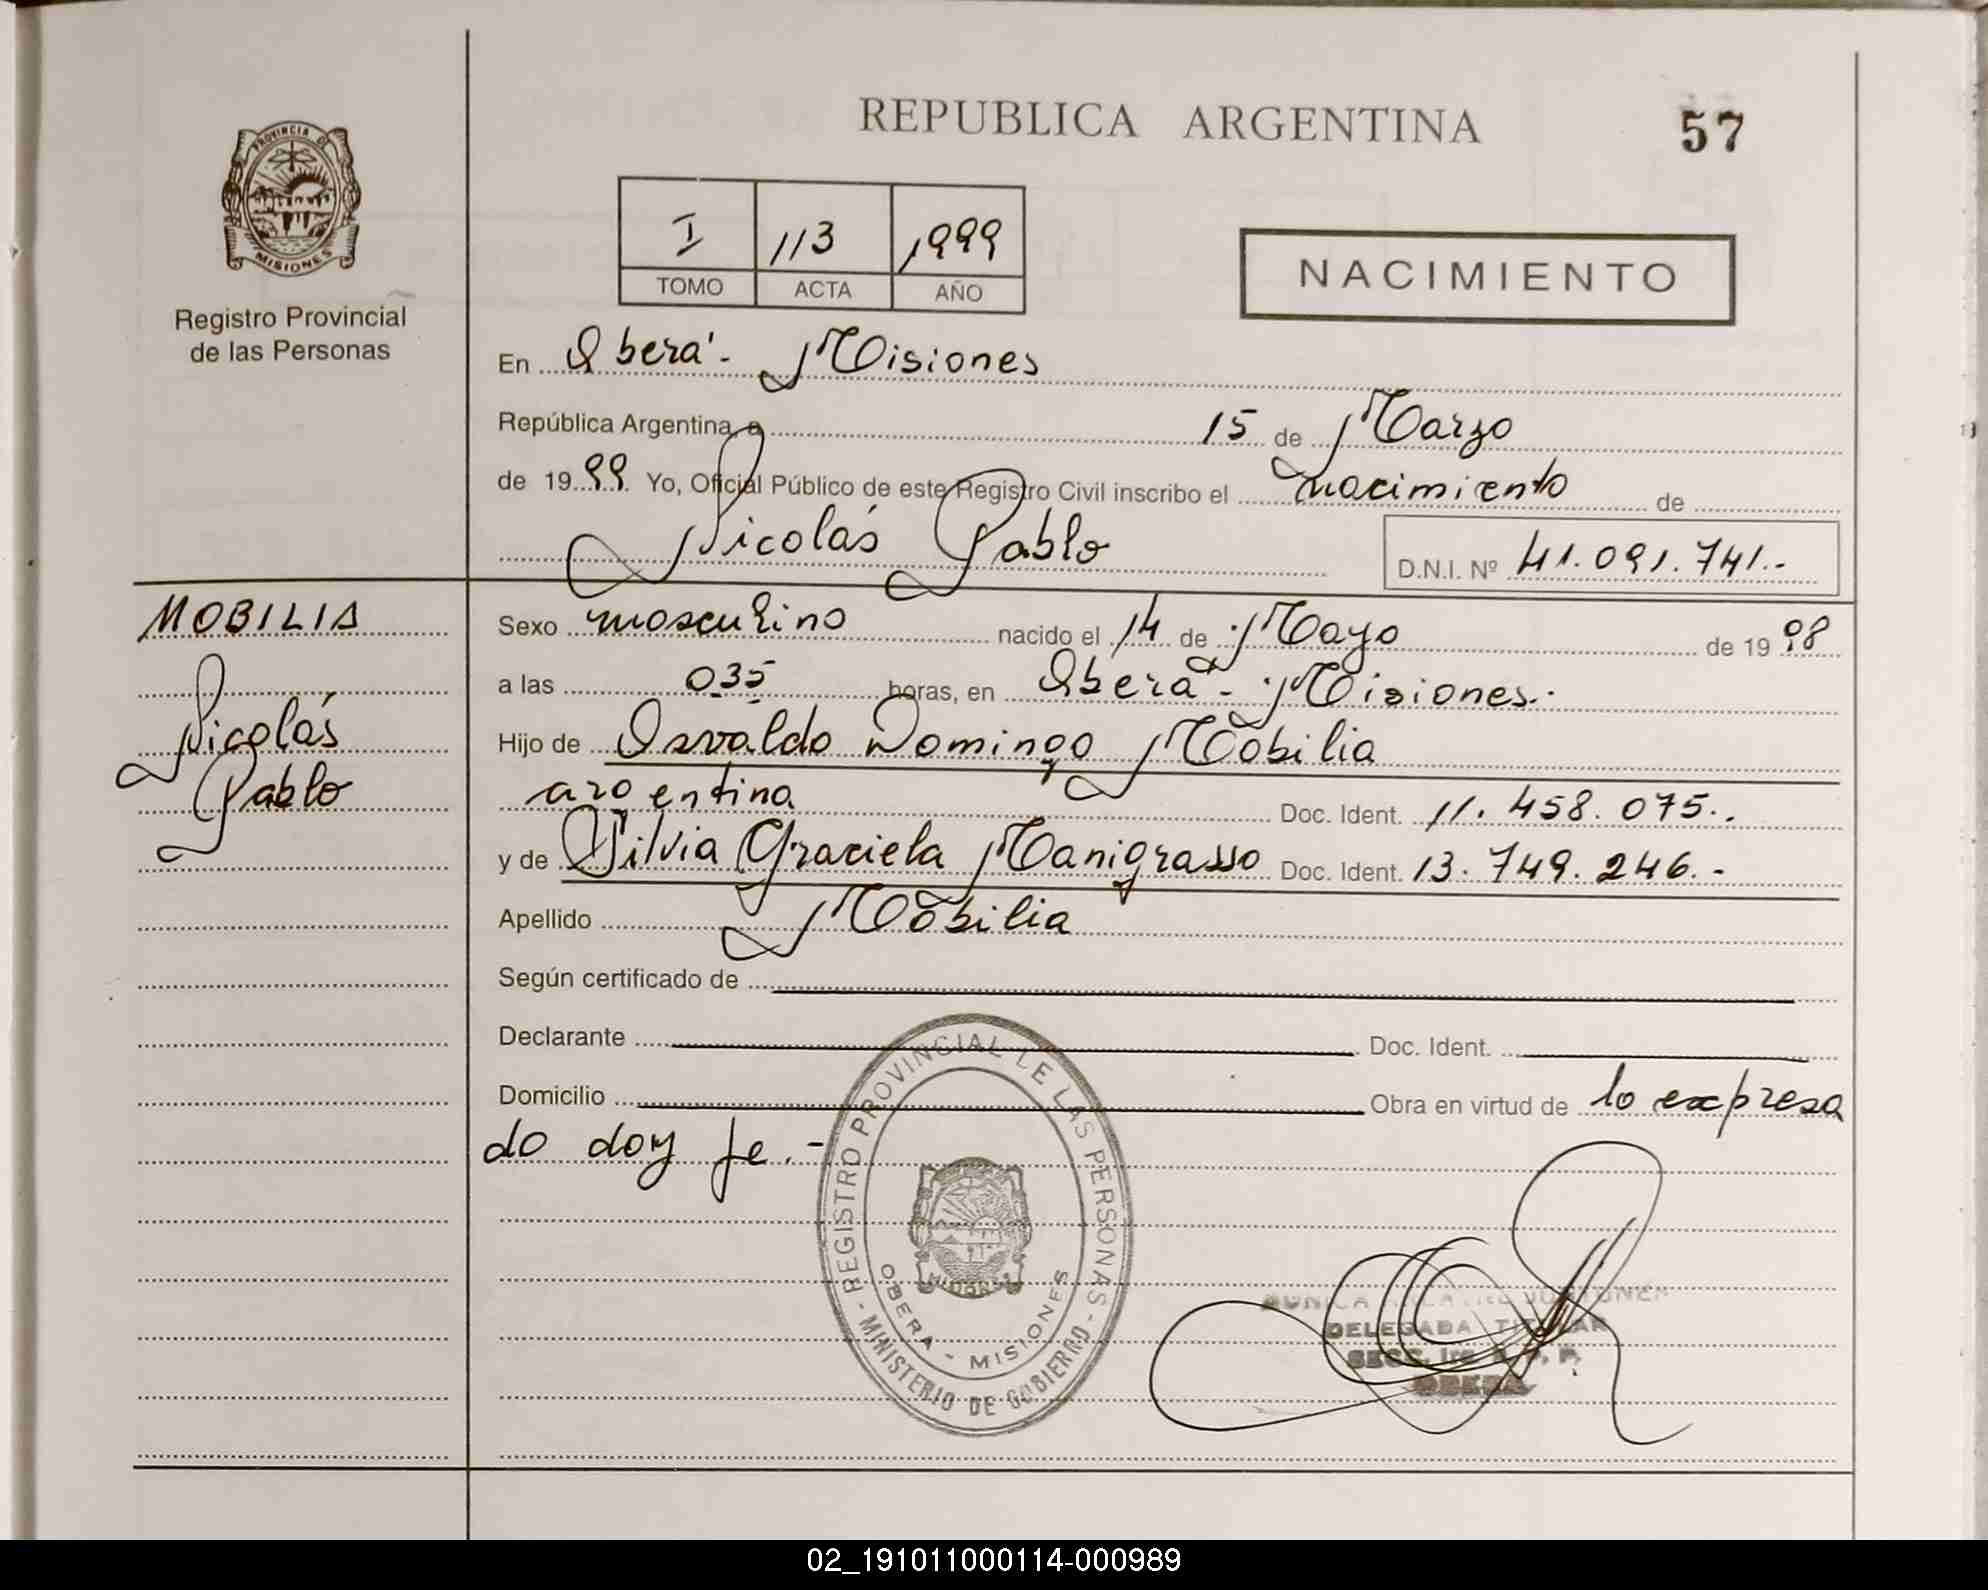 REPUBLICA ARGENTINA
57
PROVINCIA DE
MISIONES
Registro Provincial
de las Personas
I 113 1999
TOMO ACTA AÑO
NACIMIENTO
En Oberá - Misiones
República Argentina, a 15 de Marzo
de 1999 Yo, Oficial Público de este Registro Civil inscribo el nacimiento de
Nicolás Pablo D.N.I. Nº 41.091.741.-
MOBILIA
Nicolás
Pablo
Sexo masculino nacido el 14 de Mayo de 1998
a las 035 horas, en Oberá - Misiones.
Hijo de Osvaldo Domingo Mobilia
argentina Doc. Ident. 11.458.075.
y de Silvia Graciela Manigrasso Doc. Ident. 13.749.246.-
Apellido Mobilia
Según certificado de
Declarante Doc. Ident.
Domicilio Obra en virtud de lo expresa
do doy fe.-
REGISTRO PROVINCIAL DE LAS PERSONAS
- MINISTERIO DE GOBIERNO -
OBERA - MISIONES
DELEGADA TITULAR
SECC. 1ra
OBERA
02_191011000114-000989